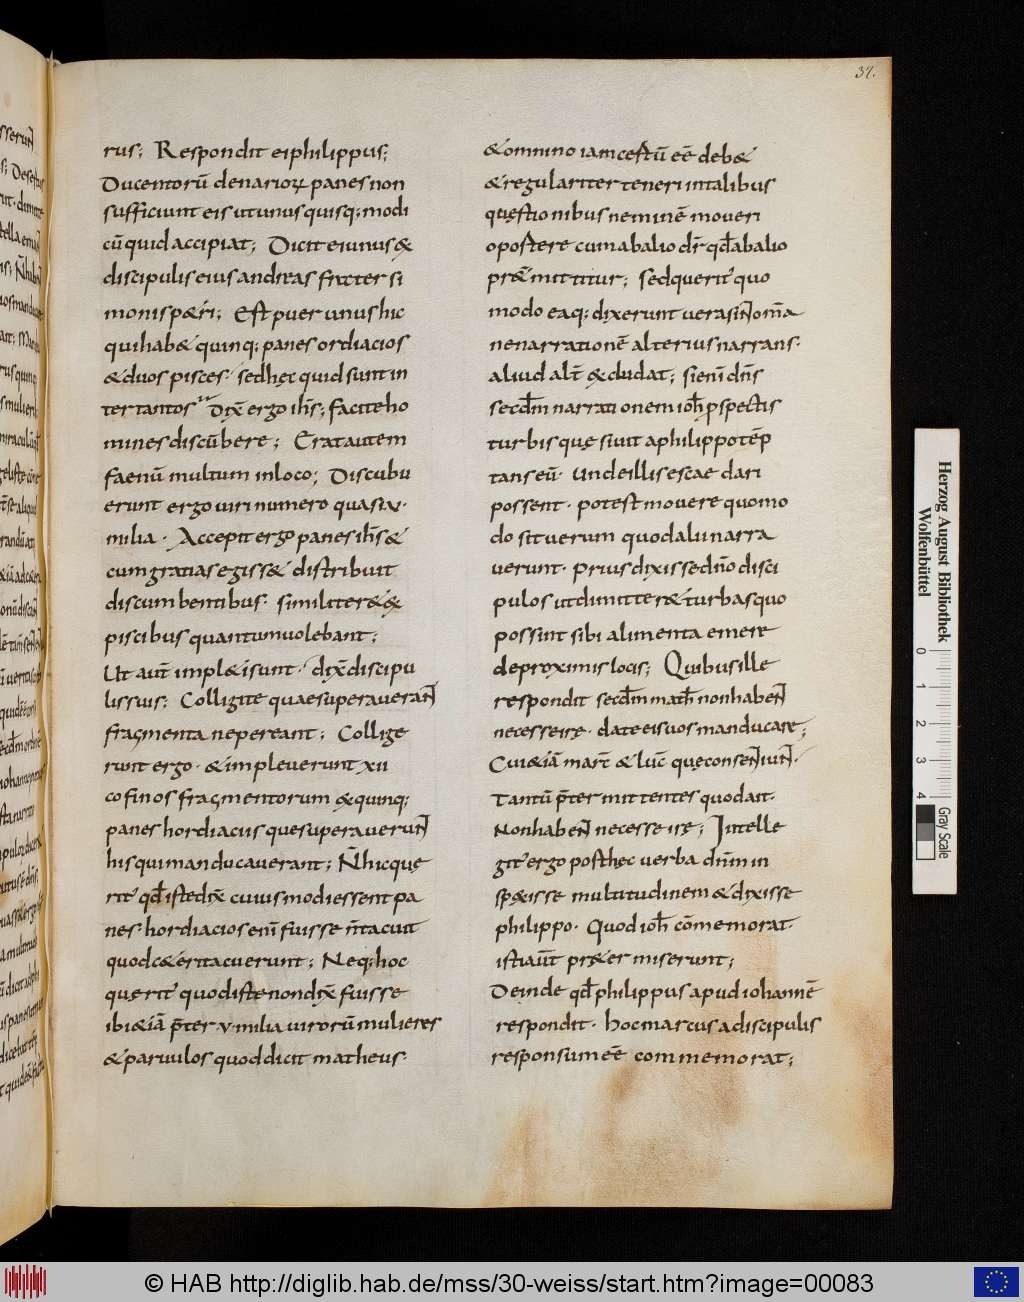 37.
rus; Respondit ei philippus;
Ducentorū denarioꝝ panes non
sufficiunt eis ut unus quisq; modi
cū quid accipiat; Dicit ei unus &
discipulis eius andreas frater si
monis p&ri; Est puer unus hic
qui hab& quinq; panes ordiacios
& duos pisces· sed hęc quid sunt in
ter tantos Dix̄ ergo ih̄s; facite ho
mines discūbere; Erat autem
faenū multum in loco; Discubu
erunt ergo viri numero quasi v·
milia· Accepit ergo panes ih̄s &
cum gratias egiss& distribuit
discumbentibus· similiter & &
piscibus quantum uolebant;
Ut aut̄ impl&i sunt· dix̄ discipu
lis suis; Colligite quae superaverant
fragmenta ne pereant; Collige
runt ergo· & impleverunt xii
cofinos fragmentorum & quinq;
panes hordiacus que superaverunt
his qui manducaverant; N̄ hic quę
rit̄ qd̄ iste dix̄ cuius modi essent pa
nes· hordiacios eni᷑ fuisse n̄ tacuit
quod c&eri tacuerunt; Neq; hoc
querit̄ quod iste non dix̄ fuisse
ibi &iā p̄ter v· milia virorū mulieres
& parvulos quod dicit matheus·
& omnino iam certū eē deb&
& regulariter teneri in talibus
quęstionibus neminē moveri
oportere cum ab alio dr̄ qd̄ ab alio
pr&mittitur; sed querit̄ quo
modo eaq; dixerunt vera sint
ne narrationē alterius narrans·
aliud alt̄ & dudat; si eni᷑ dn̄s
secdm̄ narrationem ioh̄ pspectis
turbis quę sivit a philippo tēp
tans eū· unde illis escae dari
possent· potest movere quomo
do sit verum quod alii narra
verunt· prius dixisse dn̄o disci
pulos ut dimitter& turbas quo
possint sibi alimenta emere
de proximis locis; Quibus ille
respondit secdm̄ math̄ non habent
necesse ire· date eis vos manducare;
Cui &iā marc̄ & luc̄ quę consentiunt·
Tantū p̄termittentes quod ait·
Non habent necesse ire; Intelle
git̄ ergo post hęc verba dnm̄ in
sp&isse multitudinem & dixisse
philippo· Quod ioh̄ cōmemorat·
isti aut̄ pr&ermiserunt;
Deinde qd̄ philippus apud iohannē
respondit· hoc marcus a discipulis
responsum eē commemorat;
Herzog August Bibliothek
Wolfenbüttel
0 1 2 3 4
Gray Scale
© HAB http://diglib.hab.de/mss/30-weiss/start.htm?image=00083